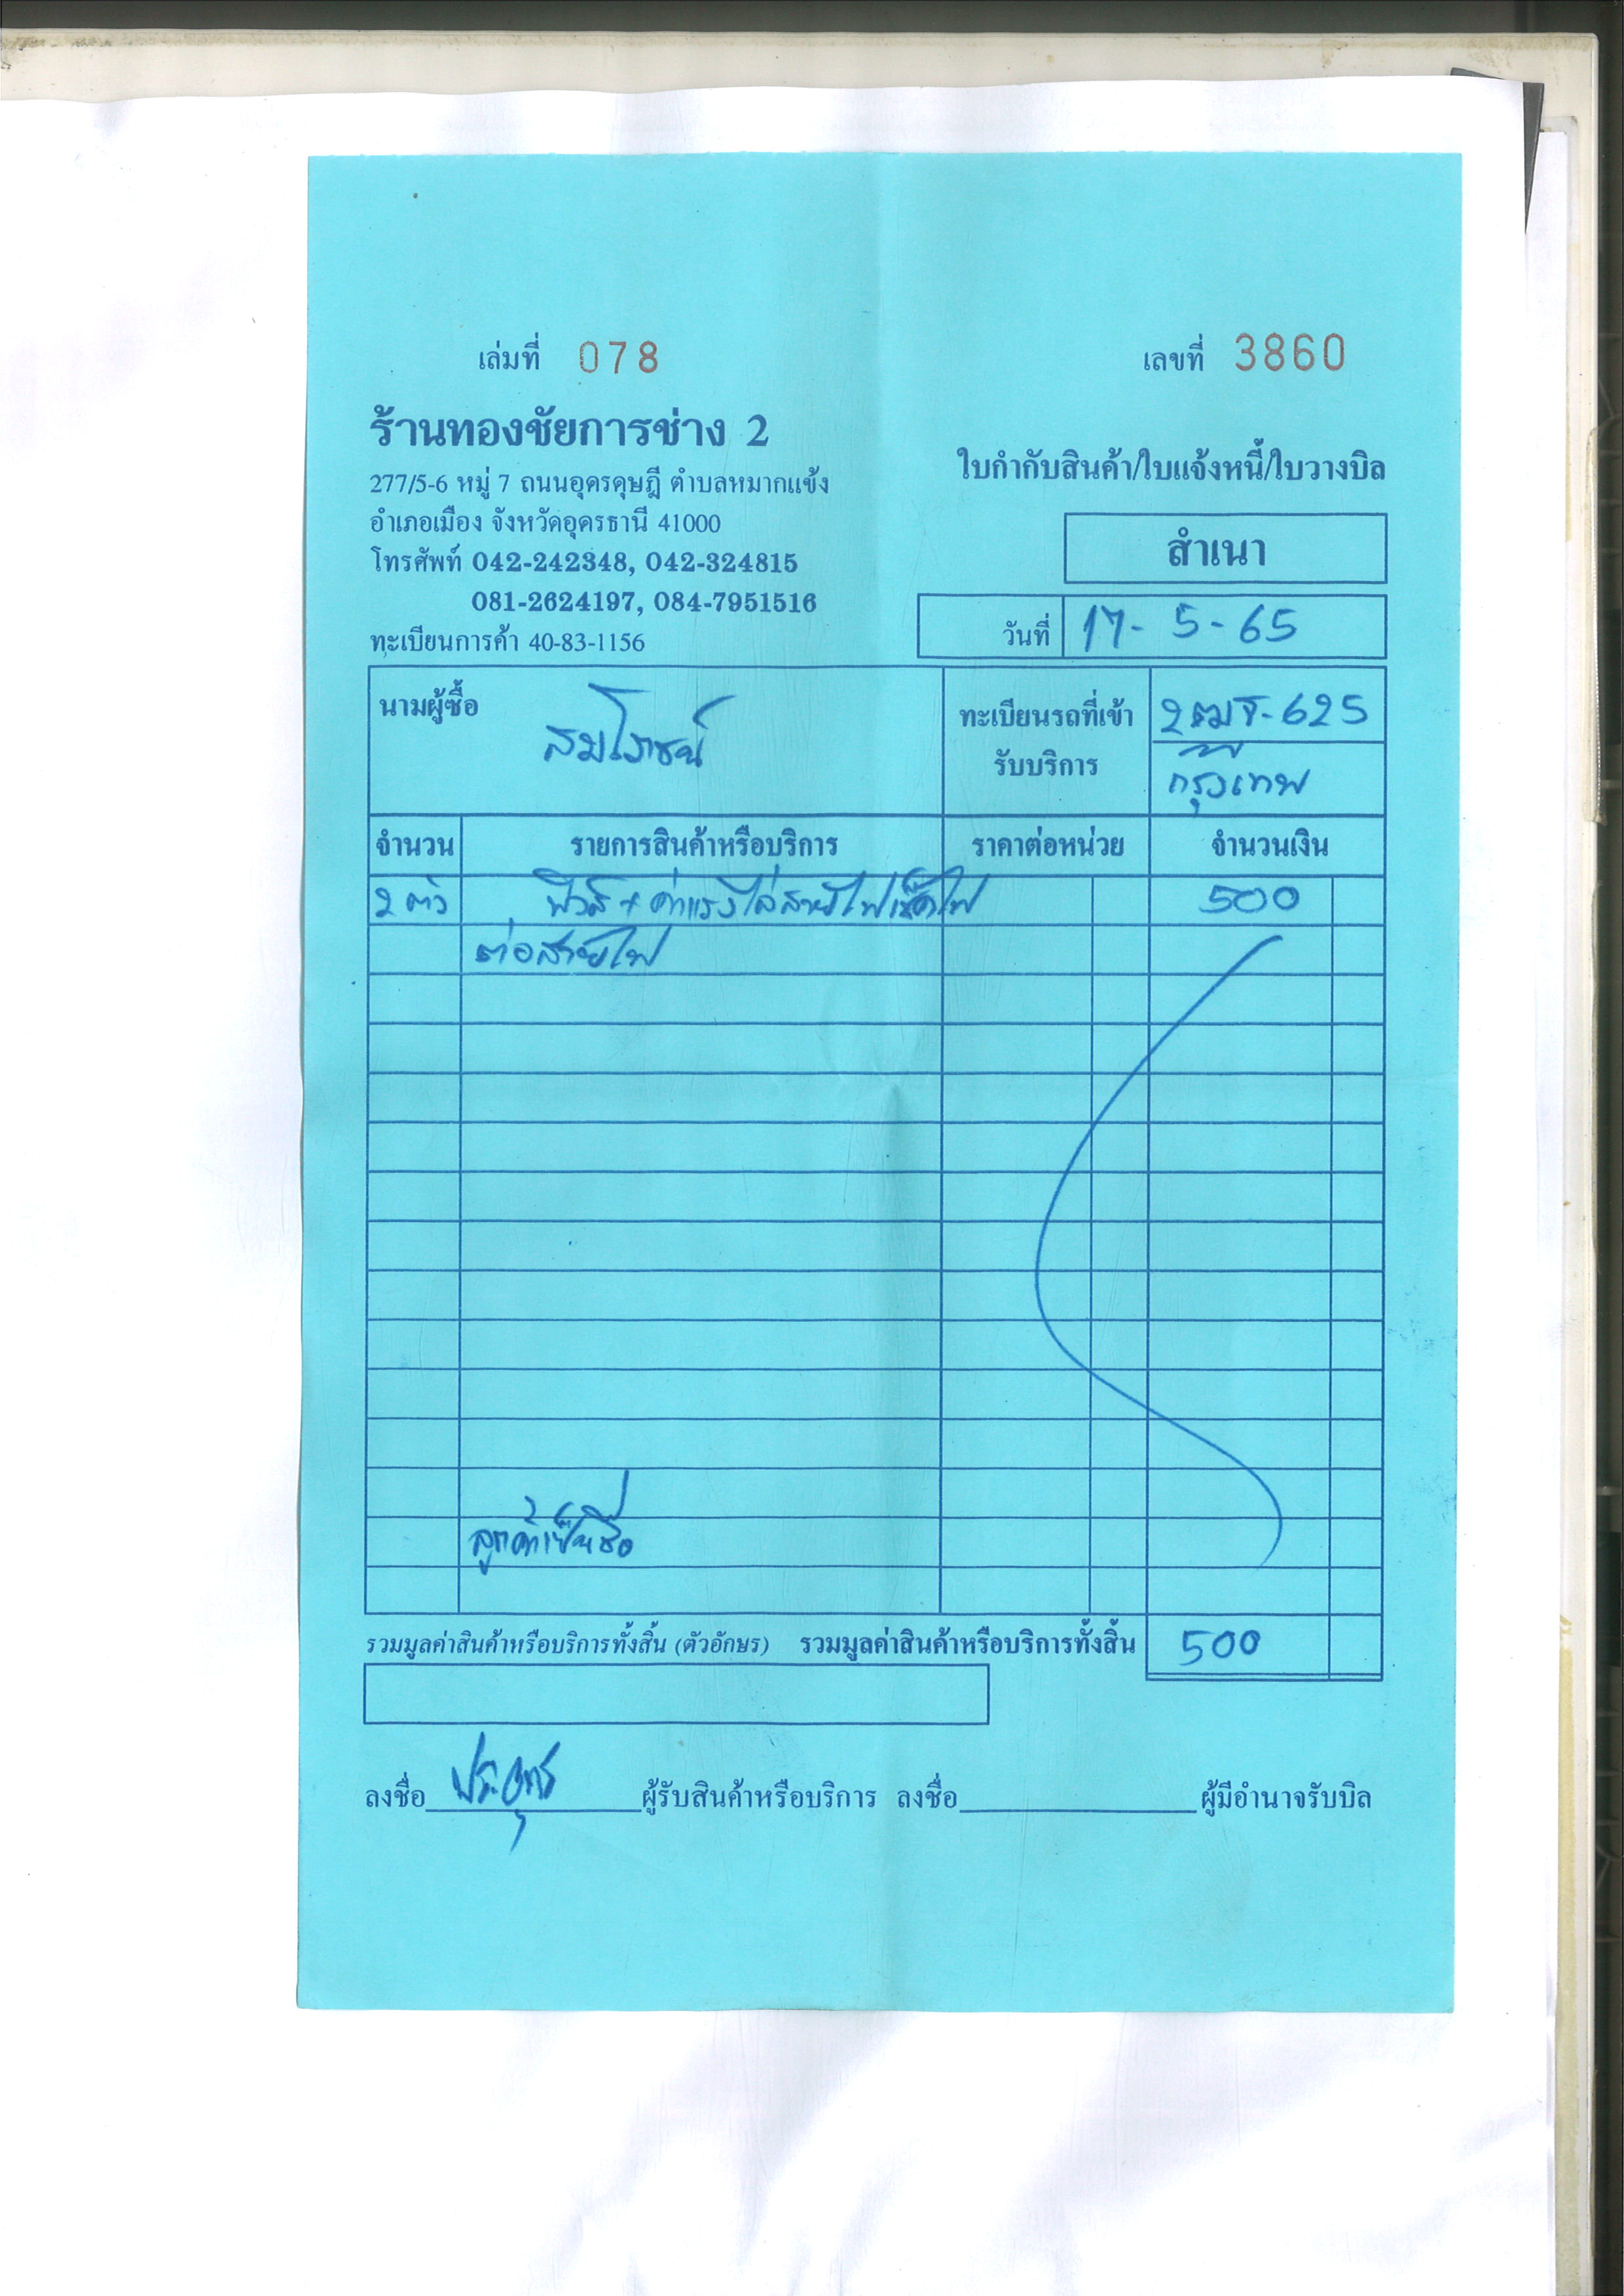 เล่มที่ 078
เลขที่ 3860
ร้านทองชัยการช่าง 2
277/5-6 หมู่ 7 ถนนอุดรดุษฎี ตำบลหมากแข้ง
อำเภอเมือง จังหวัดอุดรธานี 41000
โทรศัพท์ 042-242348, 042-324815
081-2624197, 084-7951516
ทะเบียนการค้า 40-83-1156
ใบกำกับสินค้า/ใบแจ้งหนี้/ใบวางบิล
สำเนา
วันที่ 17-5-65
นามผู้ซื้อ สมโภชน์
ทะเบียนรถที่เข้า
รับบริการ
2ฒฐ-625
กรุงเทพ
จำนวน รายการสินค้าหรือบริการ ราคาต่อหน่วย จำนวนเงิน
2 ตัว ฟิวส์ + ค่าแรงไล่สายไฟเช็คไฟ 500
ต่อสายไฟ
ลูกค้าเซ็นชื่อ
รวมมูลค่าสินค้าหรือบริการทั้งสิ้น (ตัวอักษร) รวมมูลค่าสินค้าหรือบริการทั้งสิ้น 500
ลงชื่อ ผู้รับสินค้าหรือบริการ ลงชื่อ ผู้มีอำนาจรับบิล